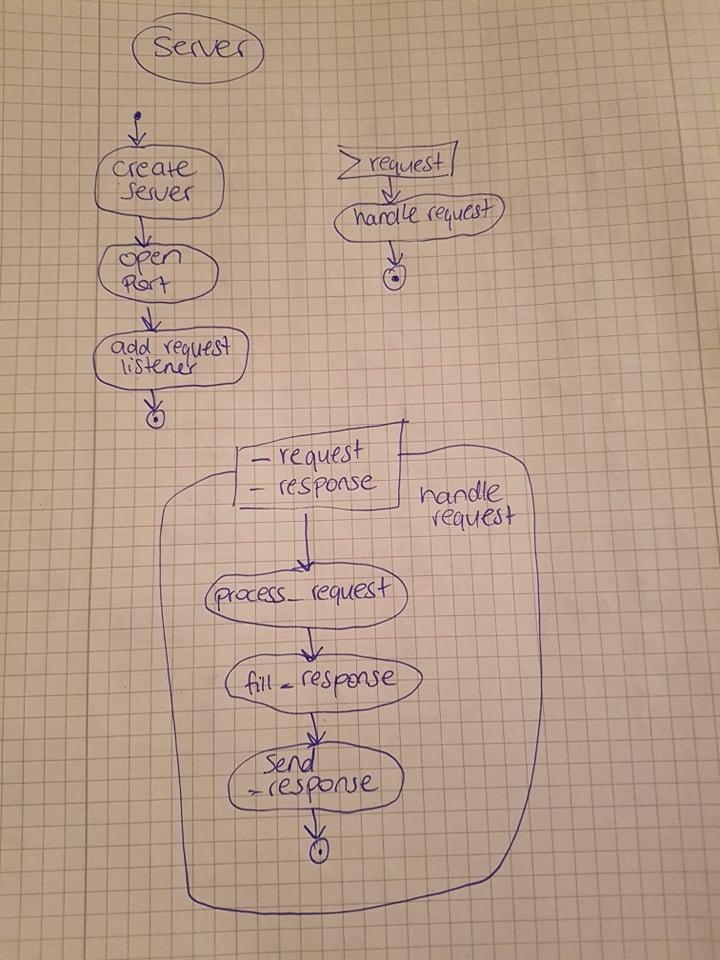 Server
create
Server
open
Port
add request
listener
request
handle request
- request
- response
handle
request
process_request
fill_response
Send
_response